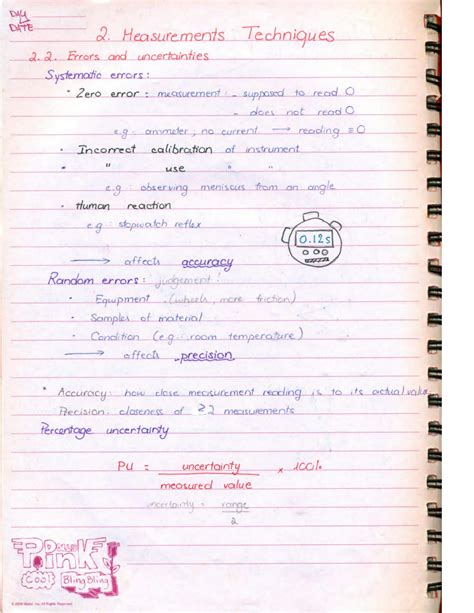 DAY
DATE
2. Measurements Techniques
2.2. Errors and uncertainties
Systematic errors:
• Zero error: measurement - supposed to read 0
- does not read 0
e.g: ammeter, no current → reading ≡ 0
• Incorrect calibration of instrument
• " use " "
e.g: observing meniscus from an angle
• Human reaction
e.g: stopwatch reflex
0.12s
→ affects accuracy
Random errors: judgement!
• Equipment (wheels, more friction)
• Samples of material
• Condition (e.g: room temperature)
→ affects precision
* Accuracy: how close measurement reading is to its actual value
Precision: closeness of ≥2 measurements
Percentage uncertainty
PU = uncertainty × 100%
measured value
uncertainty = range
2
Pink
Cool Bling Bling